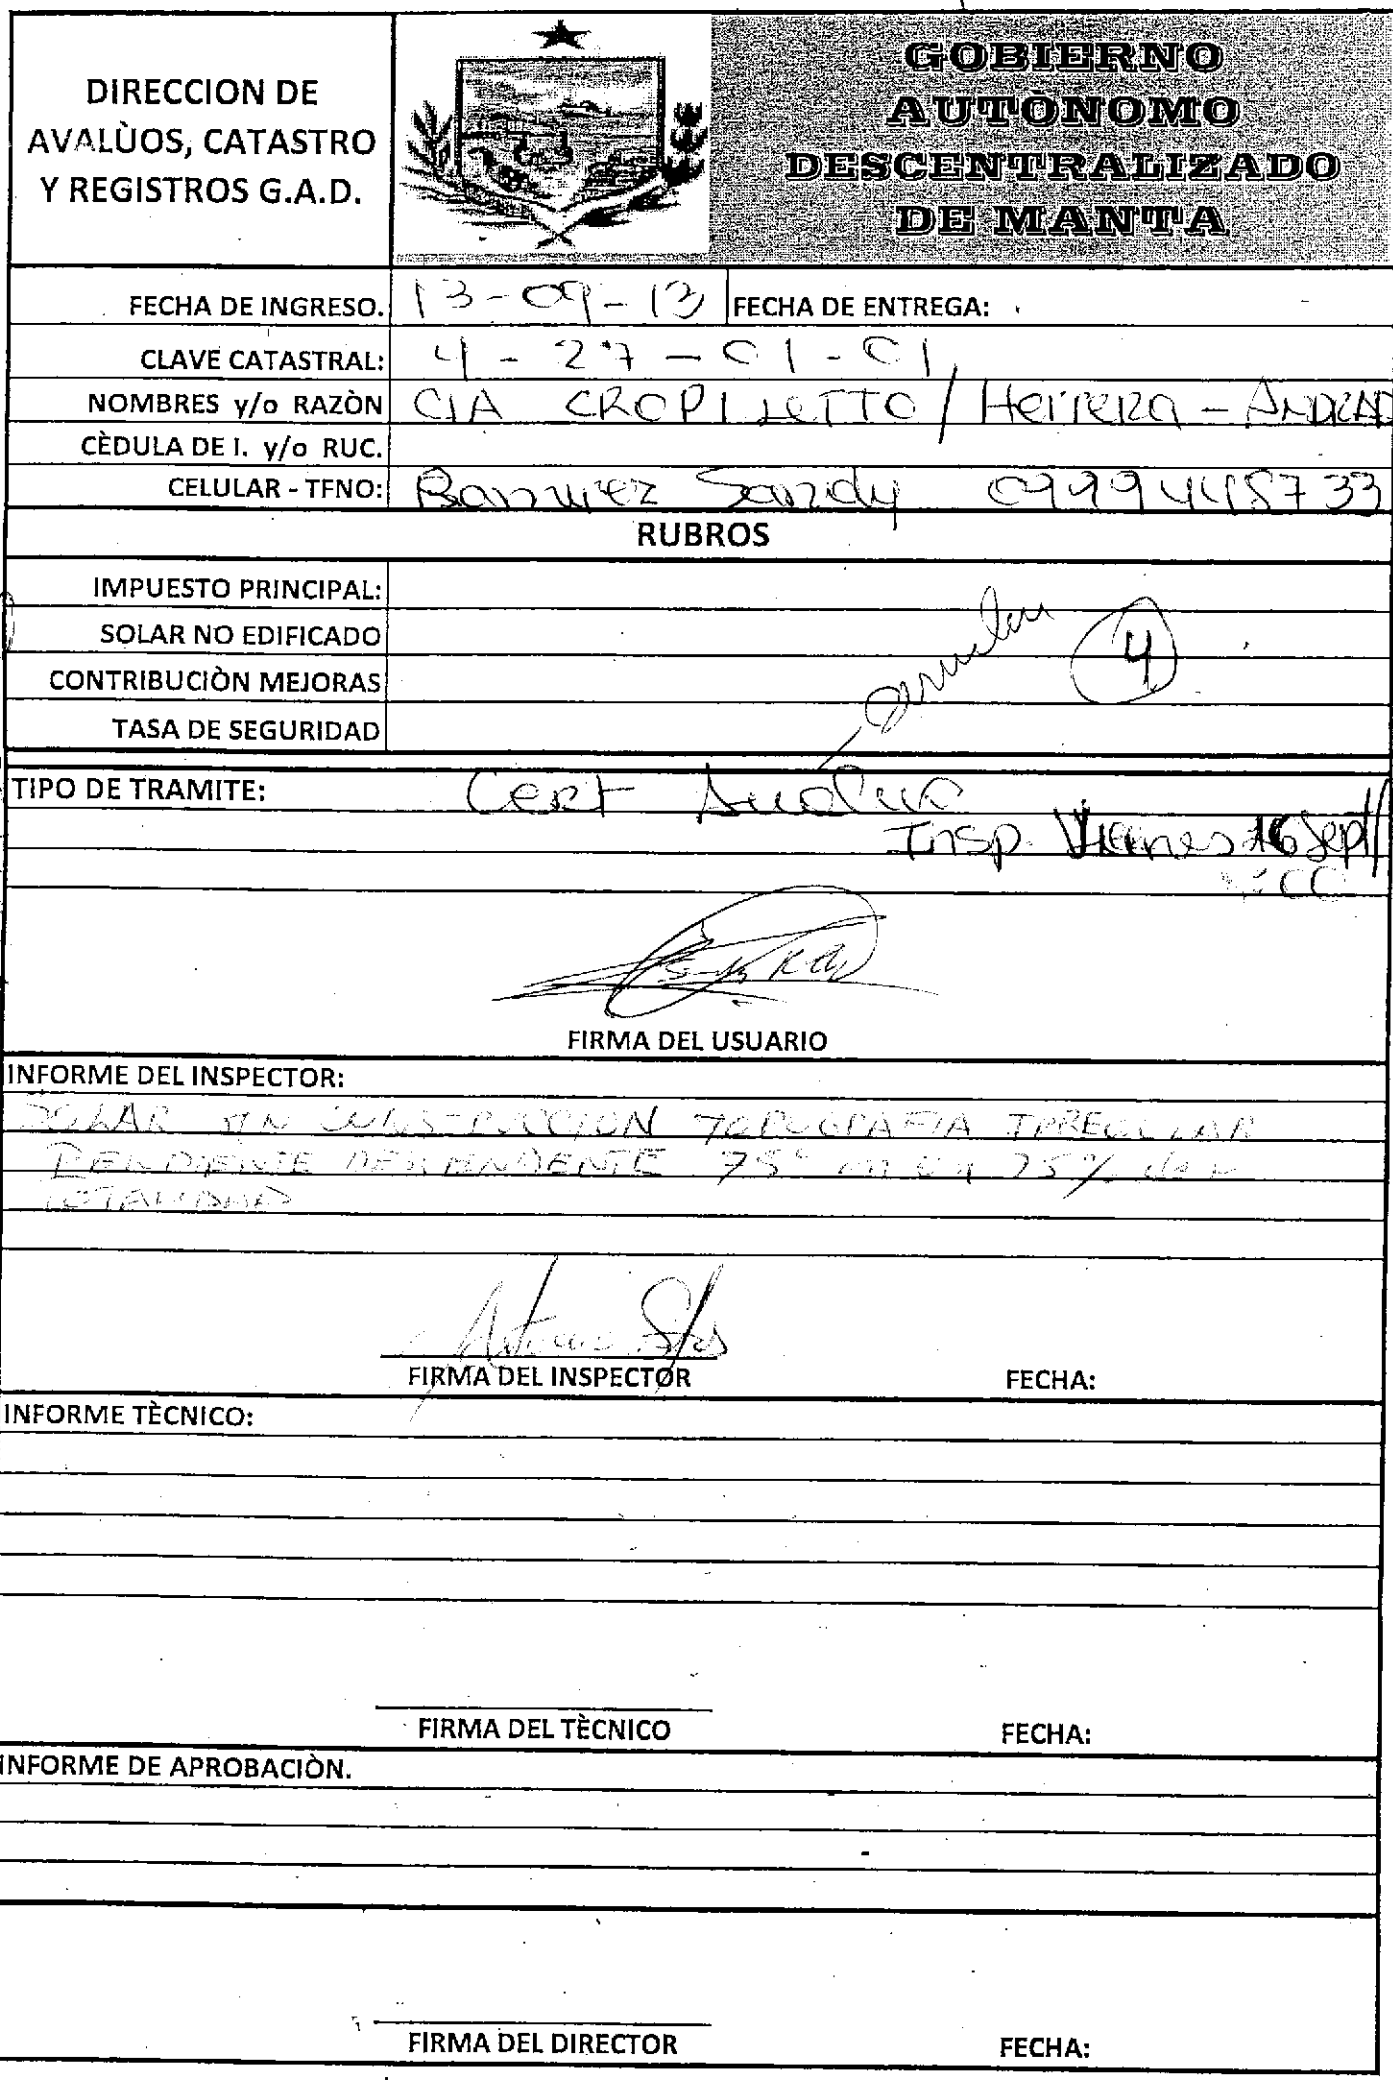 DIRECCION DE
AVALÙOS, CATASTRO
Y REGISTROS G.A.D.
GOBIERNO
AUTÒNOMO
DESCENTRALIZADO
DE MANTA
FECHA DE INGRESO. 13-09-13 FECHA DE ENTREGA:
CLAVE CATASTRAL: 4-27-01-01
NOMBRES y/o RAZÒN CIA / Herrera -
CÈDULA DE I. y/o RUC.
CELULAR - TFNO: Sandy
RUBROS
IMPUESTO PRINCIPAL:
SOLAR NO EDIFICADO
4
CONTRIBUCIÒN MEJORAS
TASA DE SEGURIDAD
TIPO DE TRAMITE: Cert
Insp. 16 Sept
FIRMA DEL USUARIO
INFORME DEL INSPECTOR:
SOLAR SIN CONSTRUCCION TOPOGRAFIA IRREGULAR
PENDIENTE DESCENDENTE 75° 75%
TOTALIDAD
FIRMA DEL INSPECTOR FECHA:
INFORME TÈCNICO:
FIRMA DEL TÈCNICO FECHA:
INFORME DE APROBACIÒN.
FIRMA DEL DIRECTOR FECHA: